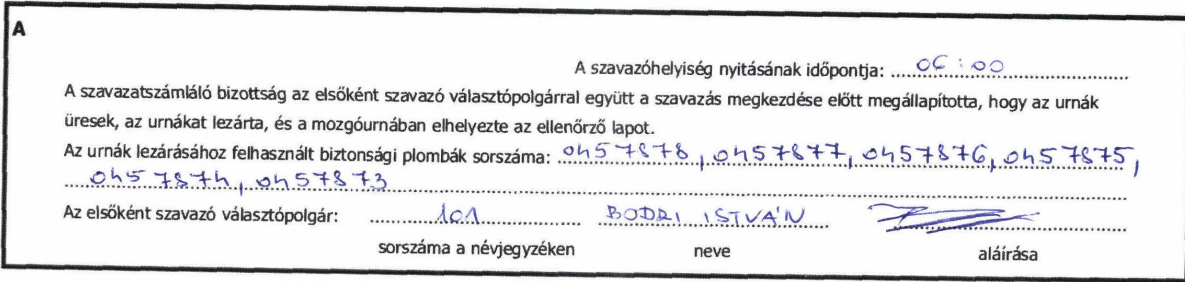 A
A szavazóhelyiség nyitásának időpontja: 06:00
A szavazatszámláló bizottság az elsőként szavazó választópolgárral együtt a szavazás megkezdése előtt megállapította, hogy az urnák
üresek, az urnákat lezárta, és a mozgóurnában elhelyezte az ellenőrző lapot.
Az urnák lezárásához felhasznált biztonsági plombák sorszáma: 0457878, 0457877, 0457876, 0457875,
0457874, 0457873
Az elsőként szavazó választópolgár: 101 BODRI ISTVÁN
sorszáma a névjegyzéken neve aláírása